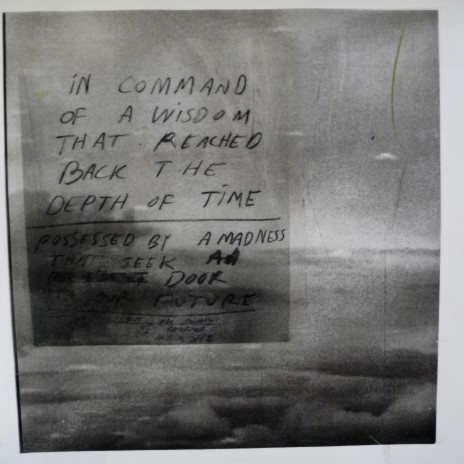 iN COMMAND
OF A WISDOM
THAT REACHED
BACK THE
DEPTH OF TiME
POSSESSED BY A MADNESS
THAT SEEK
DOOR
OUR FUTURE